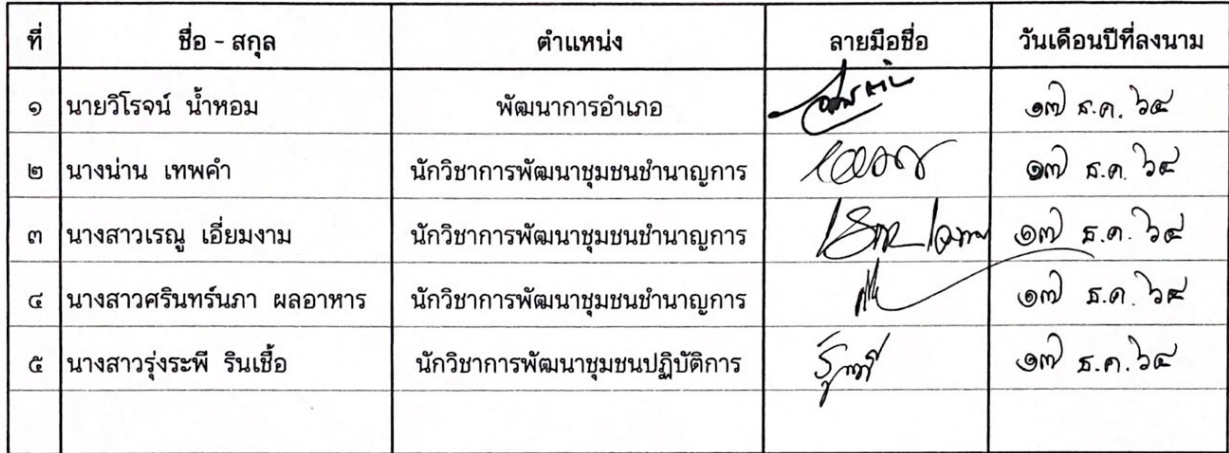 ที่ ชื่อ - สกุล ตำแหน่ง ลายมือชื่อ วันเดือนปีที่ลงนาม
๑ นายวิโรจน์ น้ำหอม พัฒนาการอำเภอ ๑๗ ธ.ค. ๖๔
๒ นางน่าน เทพคำ นักวิชาการพัฒนาชุมชนชำนาญการ ๑๗ ธ.ค. ๖๔
๓ นางสาวเรณู เอี่ยมงาม นักวิชาการพัฒนาชุมชนชำนาญการ ๑๗ ธ.ค. ๖๔
๔ นางสาวศรินทร์นภา ผลอาหาร นักวิชาการพัฒนาชุมชนชำนาญการ ๑๗ ธ.ค. ๖๔
๕ นางสาวรุ่งระพี รินเชื้อ นักวิชาการพัฒนาชุมชนปฏิบัติการ ๑๗ ธ.ค. ๖๔